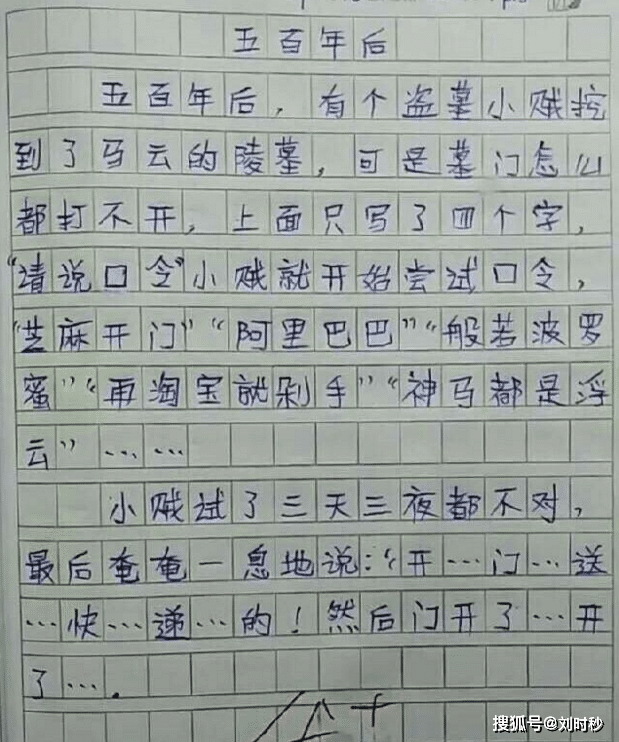 五百年后
五百年后，有个盗墓小贼挖
到了马云的陵墓，可是墓门怎么
都打不开，上面只写了四个字，
“请说口令”小贼就开始尝试口令，
“芝麻开门”“阿里巴巴”“般若波罗
蜜”“再淘宝就剁手”“神马都是浮
云”……
小贼试了三天三夜都不对，
最后奄奄一息地说：“开…门…送
…快…递…的！然后门开了…开
了….
搜狐号@刘时秒